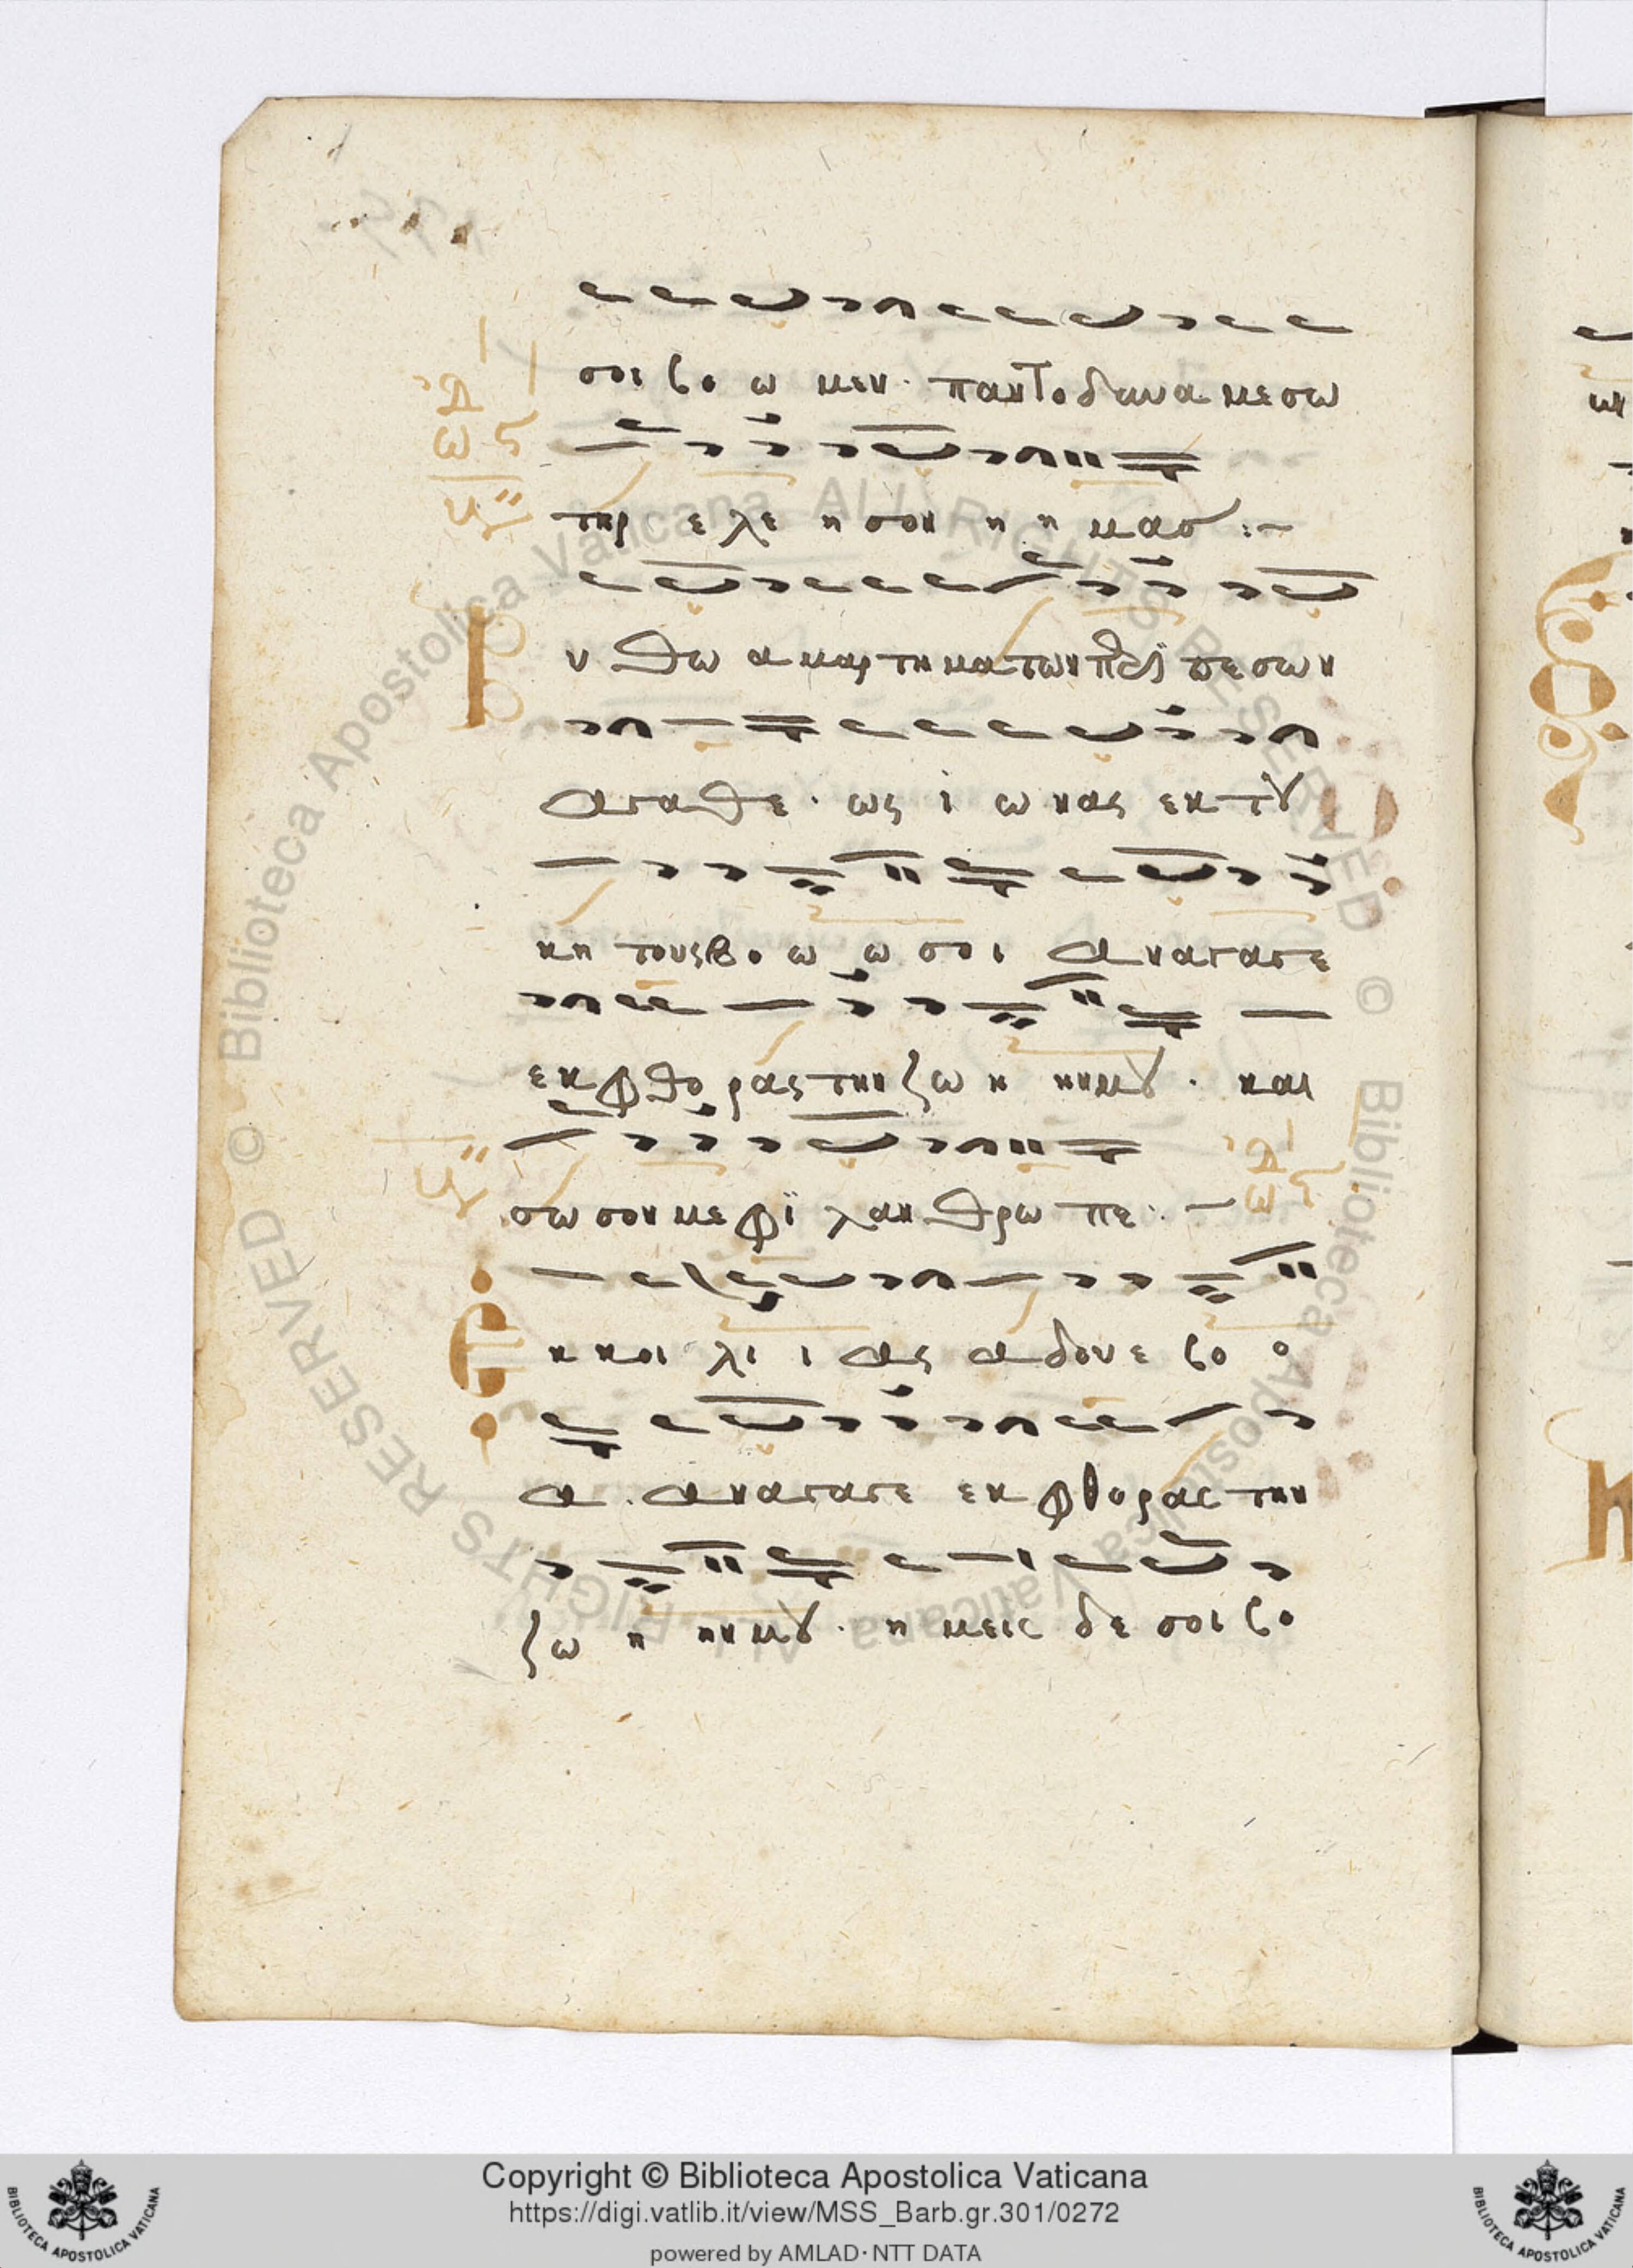 σοι βο ω μεν· παντοδυναμε σω
τηρ ε λε η σον η η μας :~
Β υ θω α μαρτηματων πε σων
αγαθε· ως ι ω νας εκ του
κη τους βο ω ω σοι αναγαγε
εκ φθο ρας την ζω η ην μου· και
σω σον με φϊ λαν θρω πε :~
Ε κ κοι λι ι ας αδου ε βο ο
α· αναγαγε εκ φθορας την
ζω η ην μου· η μεις δε σοι βο
Copyright © Biblioteca Apostolica Vaticana
https://digi.vatlib.it/view/MSS_Barb.gr.301/0272
powered by AMLAD·NTT DATA
BIBLIOTECA APOSTOLICA VATICANA
BIBLIOTECA APOSTOLICA VATICANA